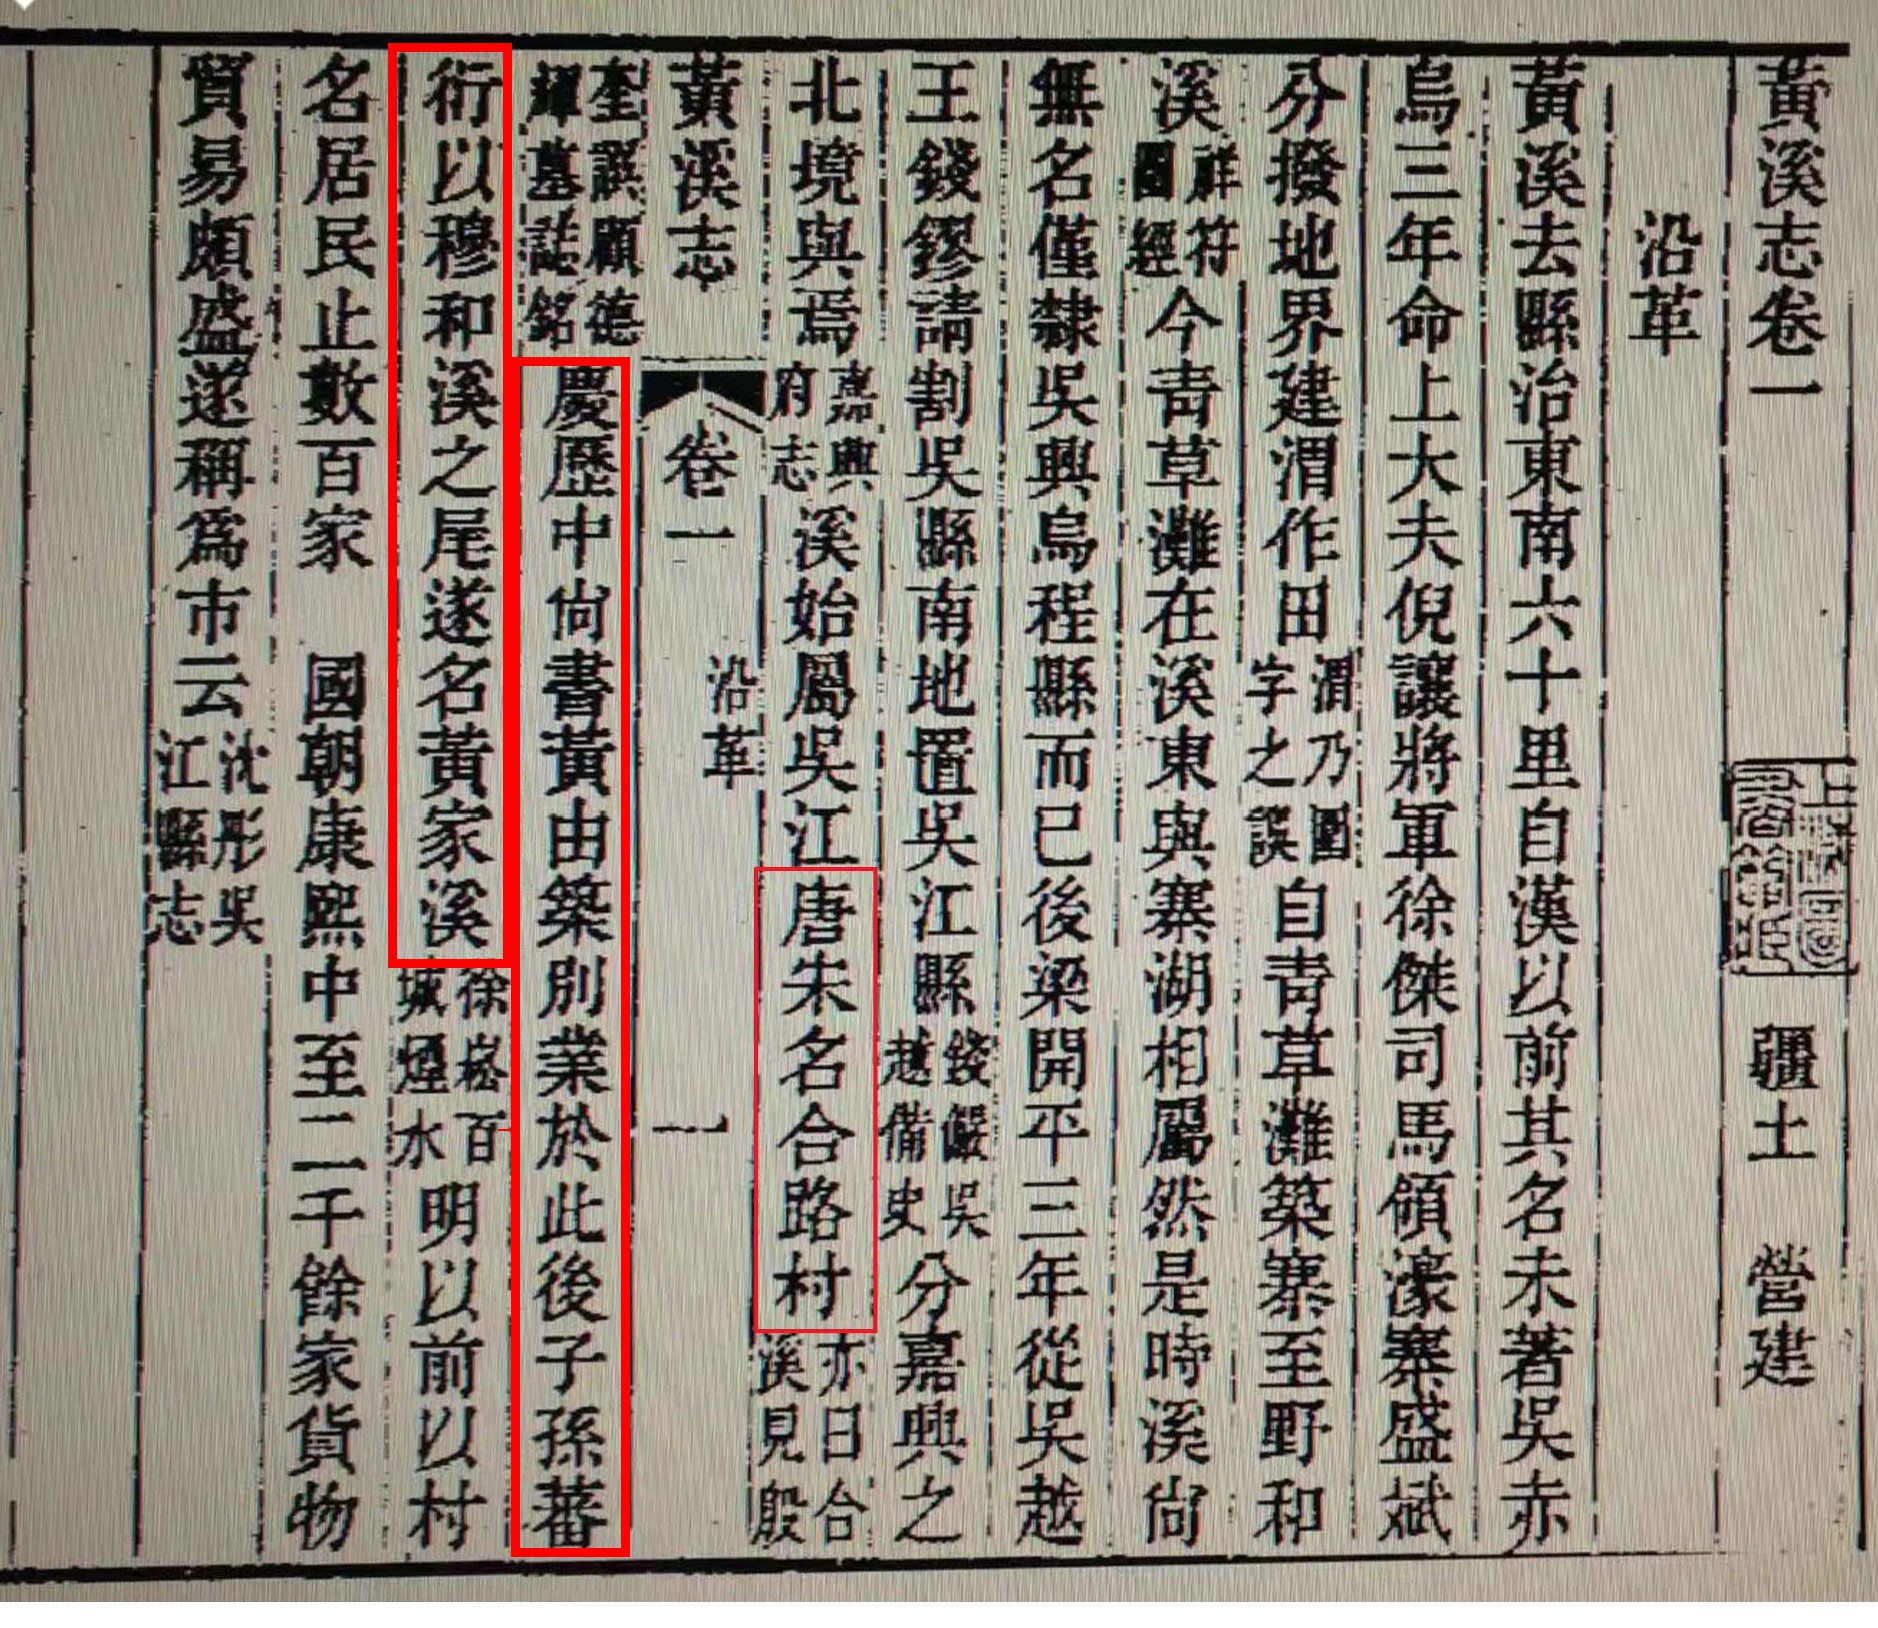 黃溪志卷一
疆土 營建
沿革
黃溪去縣治東南六十里自漢以前其名未著吳赤
烏三年命上大夫倪讓將軍徐傑司馬領濠寨盛斌
分撥地界建渭作田
渭乃圖
字之誤
自青草灘築寨至野和
溪
祥符
圖經
今青草灘在溪東與寨湖相屬然是時溪尙
無名僅隸吳興烏程縣而已後梁開平三年從吳越
王錢鏐請割吳縣南地置吳江縣
錢儼吳
越備史
分嘉興之
北境與焉
嘉興
府志
溪始屬吳江唐朱名合路村
亦曰合
溪見殷
黃溪志
卷一
沿革
一
奎誤顧德
輝墓誌銘
慶歷中尙書黃由築別業於此後子孫蕃
衍以穆和溪之尾遂名黃家溪
徐崧百
城煙水
明以前以村
名居民止數百家 國朝康熙中至二千餘家貨物
貿易頗盛遂稱爲市云
沈彤吳
江縣志